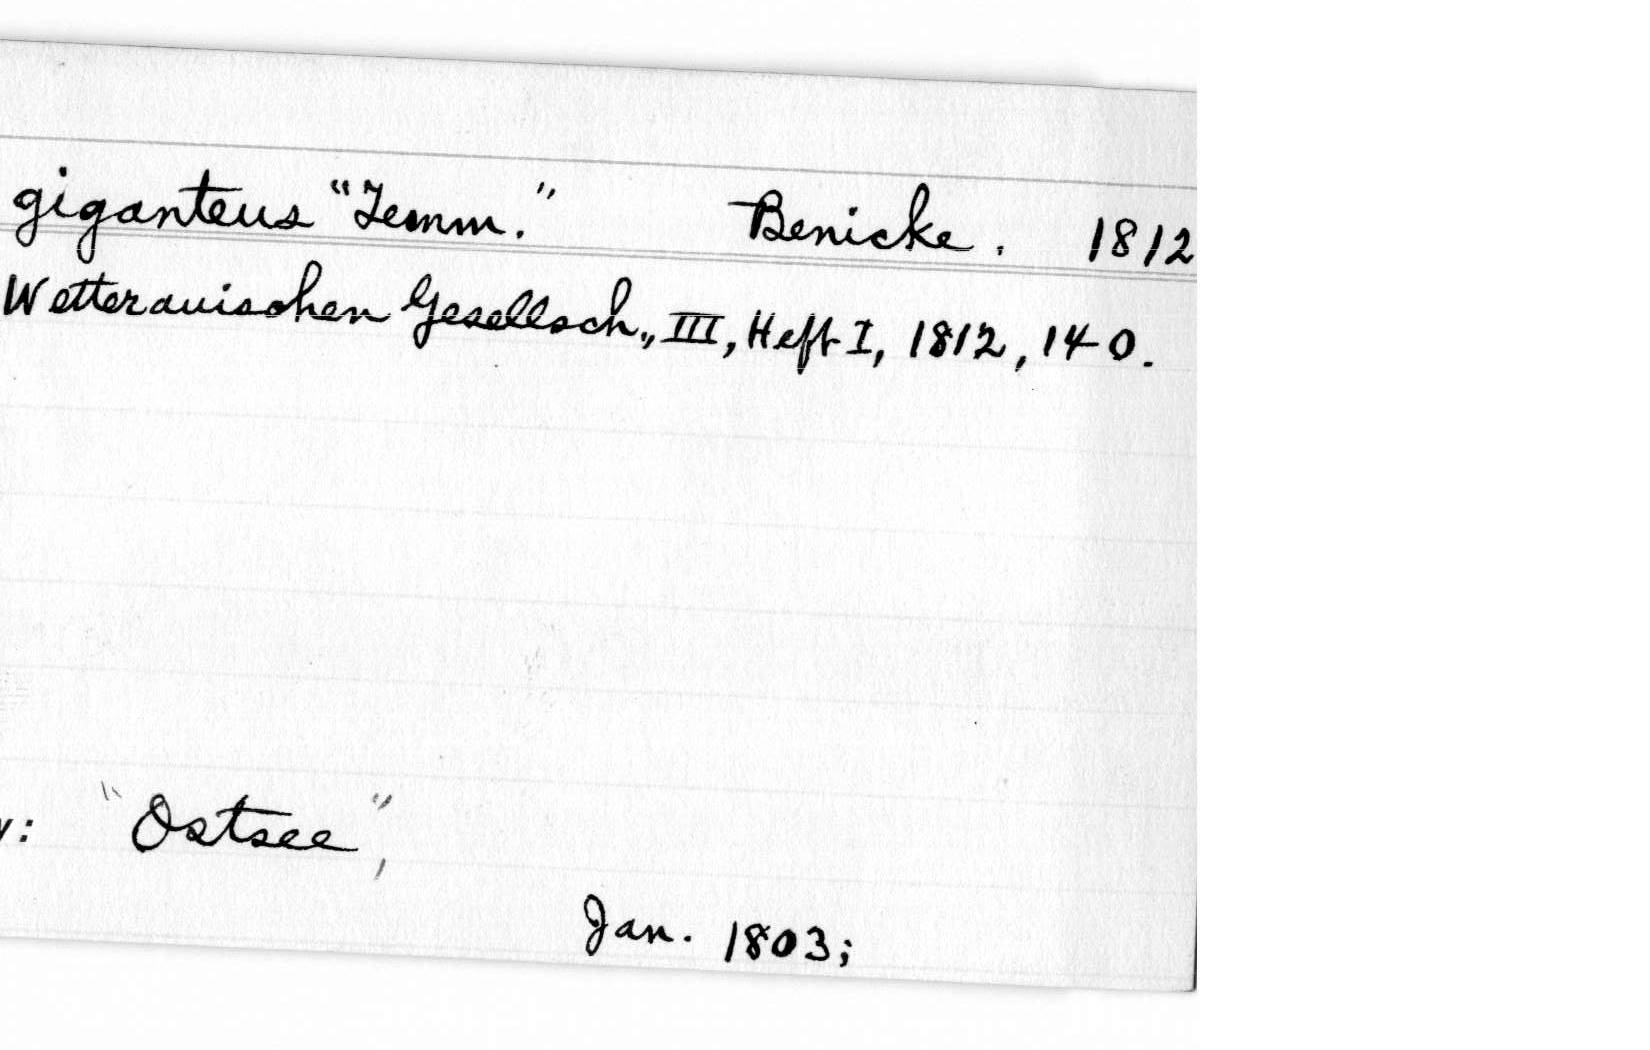 giganteus "Temm." Benicke. 1812
Wetterauischen Gesellsch., III, Heft I, 1812, 140.
y: "Ostsee",
Jan. 1803;